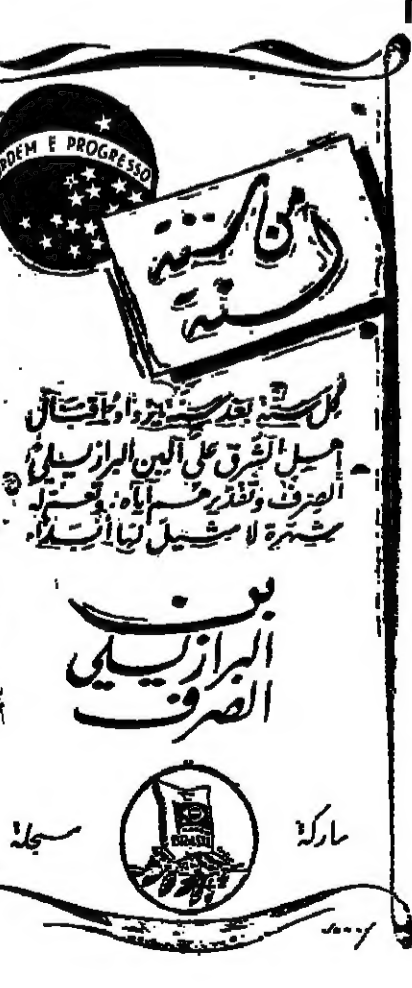 ORDEM E PROGRESSO
من السنة
للسنة
كل سنة بعد سنة يزداد إقبال
أهل الشرق على البن البرازيلي
الصرف وتقديرهم إياه. وتعم له
شهرة لا مثيل لها أبداً
بن
البرازيلي
الصرف
ماركة
مسجلة
BRASIL